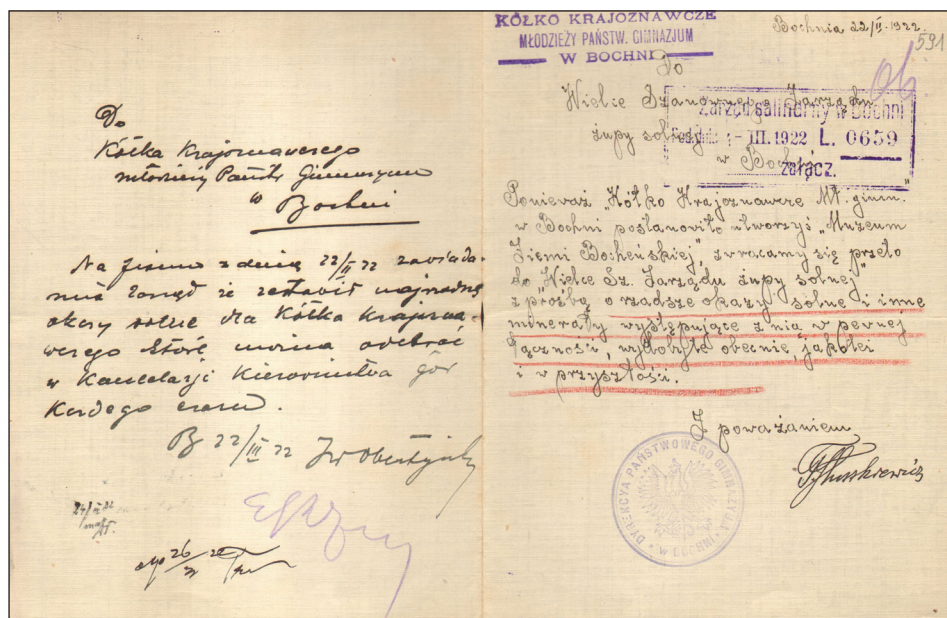 Do
Kółka Krajoznawczego
młodzieży Państw Gimnazyum
w Bochni
Na pismo z dnia 22/II 22 zawiada-
mia Zarząd że zestawił
okazy solne dla Kółka Krajozna
wczego które można odebrać
w Kancelarji Kierownictwa gór
każdego czasu.
B 22/III 22
24/III 22
26/III 22
KÓŁKO KRAJOZNAWCZE
MŁODZIEŻY PAŃSTW. GIMNAZJUM
W BOCHNI
Bochnia 22/II. 1922.
591
Do
Wielce Szanownego Zarządu
żupy solnej
w Bochni
Zarząd salinarny w Bochni
III. 1922 L. 0659
załącz.
Ponieważ „Kółko Krajoznawcze Mł. gimn.
w Bochni postanowiło utworzyć „Muzeum
Ziemi Bocheńskiej”, zwracamy się przeto
do Wielce Sz. Zarządu żupy solnej”
z prośbą o rzadsze okazy solne i inne
minerały występujące z nią w pewnej
łączności, wydobyte obecnie, jakoteż
i w przyszłości.
Z poważaniem
DYREKCYA PAŃSTWOWEGO GIMNAZYUM
w BOCHNI